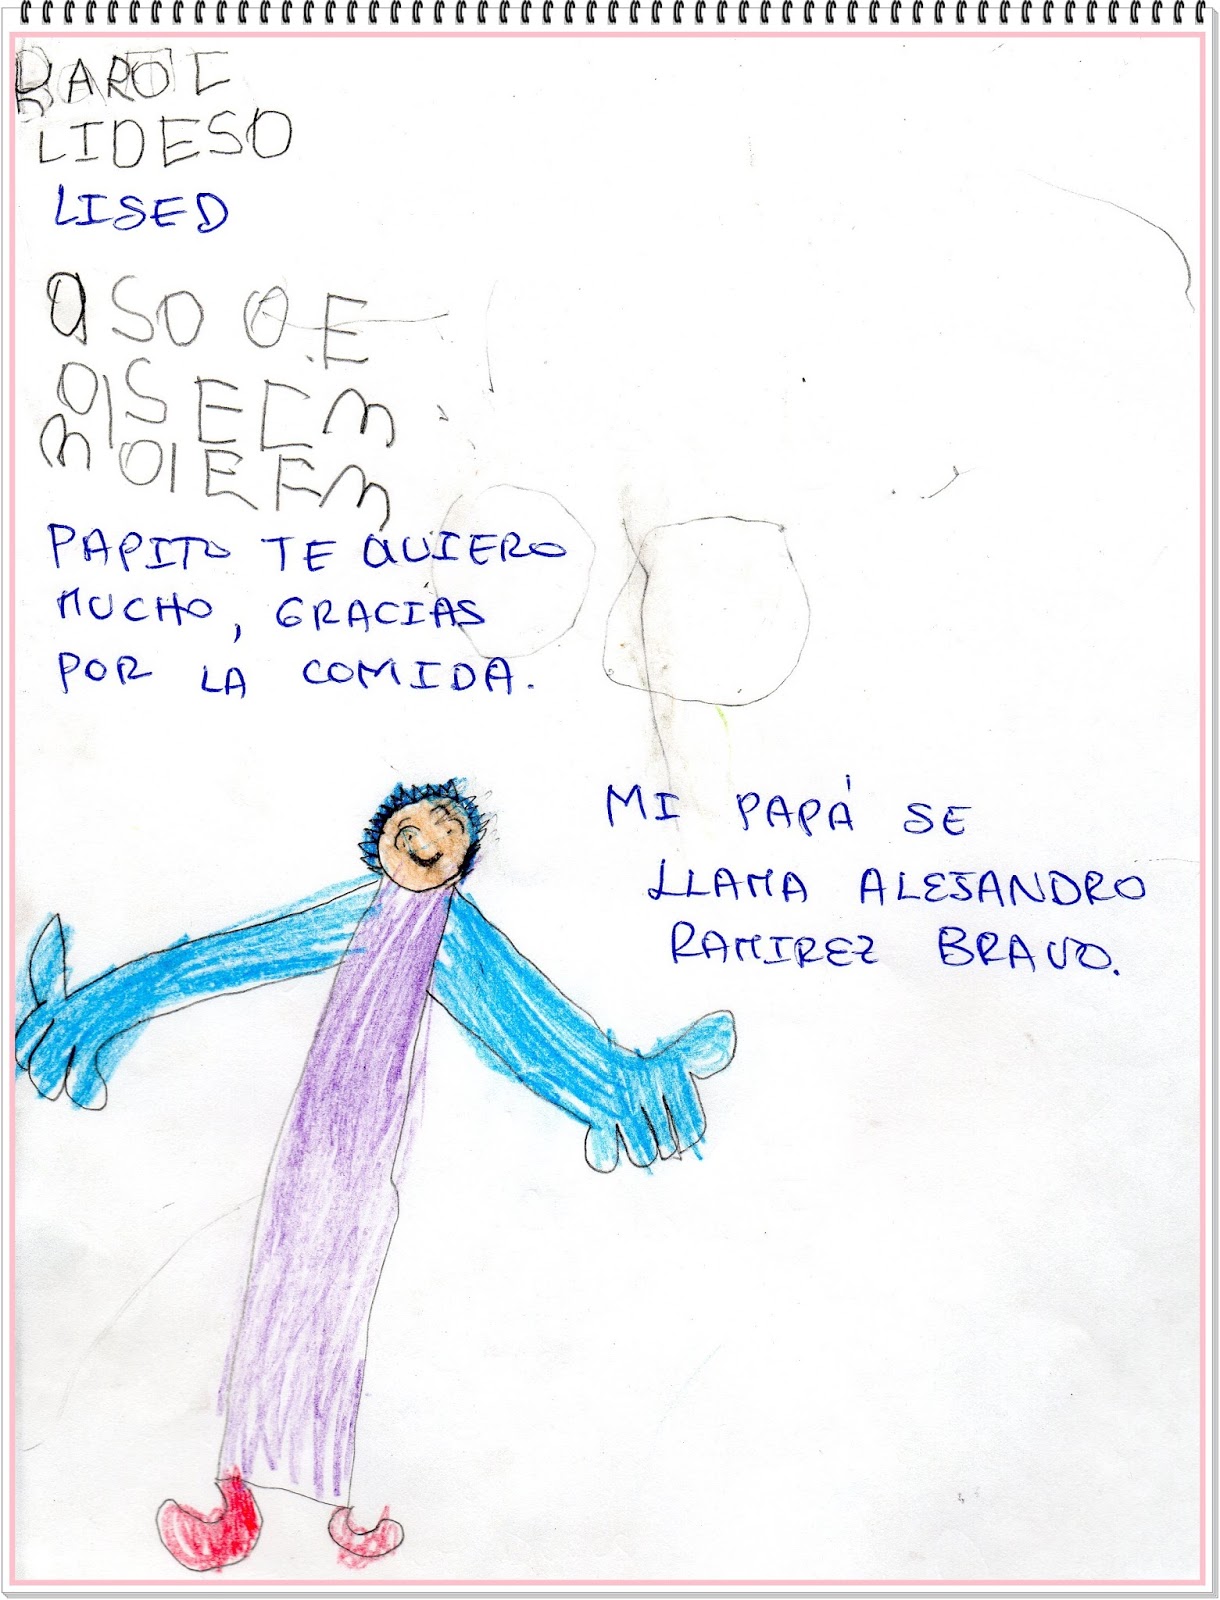 KAROL
LIDESO
LISED
ASO O.E
OISECM
MOIEFM
PAPITO TE QUIERO
MUCHO, GRACIAS
POR LA COMIDA.
MI PAPÁ SE
LLAMA ALEJANDRO
RAMIREZ BRAVO.